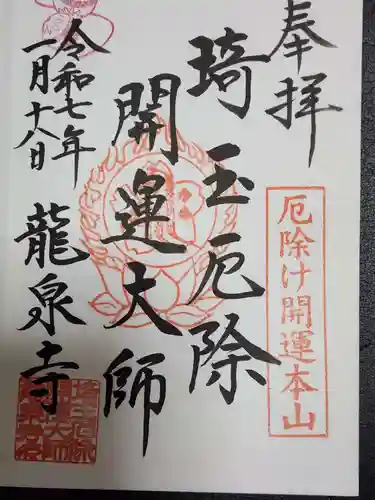 奉拝
厄除け開運本山
琦玉厄除
開運大師
令和七年
一月十八日
龍泉寺